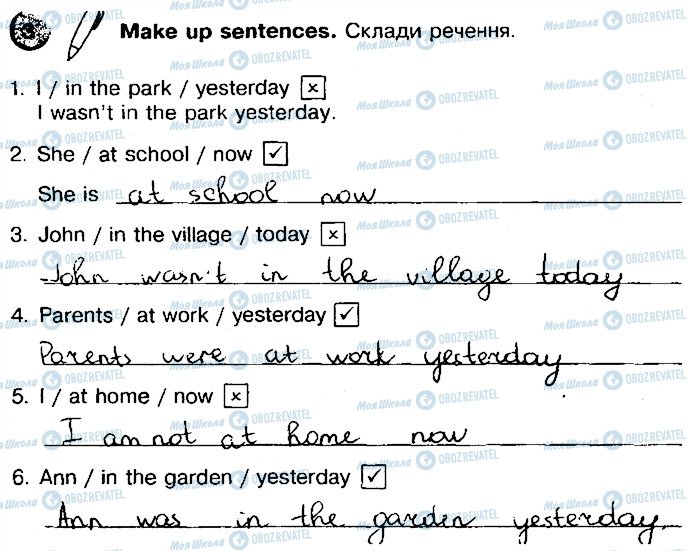 3 Make up sentences. Склади речення.
1. I / in the park / yesterday [x]
I wasn't in the park yesterday.
2. She / at school / now [✓]
She is at school now
3. John / in the village / today [x]
John wasn't in the village today
4. Parents / at work / yesterday [✓]
Parents were at work yesterday
5. I / at home / now [x]
I am not at home now
6. Ann / in the garden / yesterday [✓]
Ann was in the garden yesterday.
МояШкола OBOZREVATEL